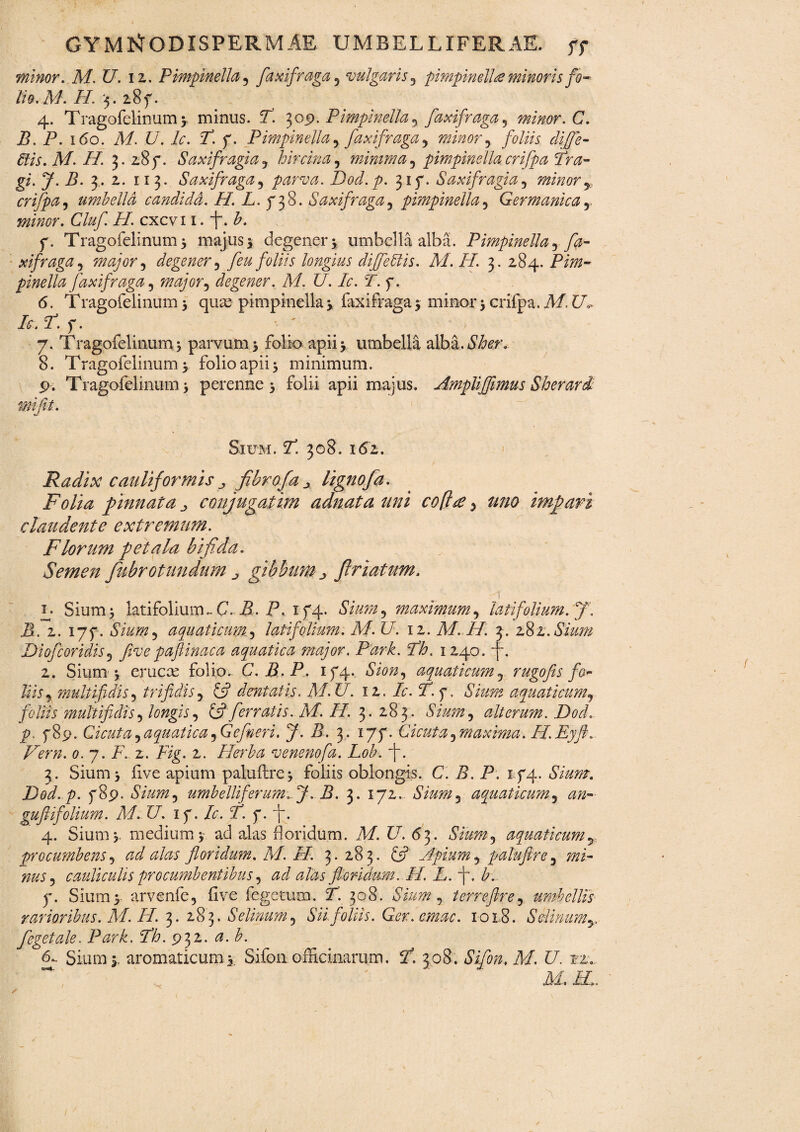 GYMNODISPERMAE UMBELLIFERAE. 55
minor. M. U. 12. Pimpinella, ſaxifraga, vulgaris, pimpinellæ minoris fo-
lio. M. H. 3. 285.
4. Tragoſelinum; minus. T. 309. Pimpinella, ſaxifraga, minor. C.
B. P. 160. M. U. Ic. T. 5. Pimpinella, ſaxifraga, minor, foliis diſſe-
ctis. M. H. 3. 285. Saxifragia, hircina, minima, pimpinella criſpa Tra-
gi. J. B. 3. 2. 113. Saxifraga, parva. Dod. p. 315. Saxifragia, minor,
criſpa, umbellâ candidâ. H. L. 538. Saxifraga, pimpinella, Germanica,
minor. Cluſ. H. CXCVII. †. b.
5. Tragoſelinum; majus; degener; umbellâ albâ. Pimpinella, ſa-
xifraga, major, degener, ſeu foliis longius diſſectis. M. H. 3. 284. Pim-
pinella ſaxifraga, major, degener. M. U. Ic. T. 5.
6. Tragoſelinum; quæ pimpinella; ſaxifraga; minor; criſpa. M. U.
Ic. T. 5.
7. Tragoſelinum; parvum; folio apii; umbellâ albâ. Sher.
8. Tragoſelinum; folio apii; minimum.
9. Tragoſelinum; perenne; folii apii majus. Ampliſſimus Sherard
miſit.
SIUM. T. 308. 162.
Radix cauliformis, fibroſa, lignoſa.
Folia pinnata, conjugatim adnata uni coſtæ, uno impari
claudente extremum.
Florum petala bifida.
Semen ſubrotundum, gibbum, ſtriatum.
1. Sium; latifolium. C. B. P. 154. Sium, maximum, latifolium. J.
B. 2. 175. Sium, aquaticum, latifolium. M. U. 12. M. H. 3. 282. Sium
Dioſcoridis, ſive paſtinaca aquatica major. Park. Th. 1240. †.
2. Sium; erucæ folio. C. B. P. 154. Sion, aquaticum, rugoſis fo-
liis, multifidis, trifidis, & dentatis. M. U. 12. Ic. T. 5. Sium aquaticum,
foliis multifidis, longis, & ſerratis. M. H. 3. 283. Sium, alterum. Dod.
p. 589. Cicuta, aquatica, Geſneri. J. B. 3. 175. Cicuta, maxima. H. Eyſt.
Vern. o. 7. F. 2. Fig. 2. Herba venenoſa. Lob. †.
3. Sium; ſive apium paluſtre; foliis oblongis. C. B. P. 154. Sium.
Dod. p. 589. Sium, umbelliferum. J. B. 3. 172. Sium, aquaticum, an-
guſtifolium. M. U. 15. Ic. T. 5. †.
4. Sium; medium; ad alas floridum. M. U. 63. Sium, aquaticum,
procumbens, ad alas floridum. M. H. 3. 283. & Apium, paluſtre, mi-
nus, cauliculis procumbentibus, ad alas floridum. H. L. †. b.
5. Sium; arvenſe, ſive ſegetum. T. 308. Sium, terreſtre, umbellis
rarioribus. M. H. 3. 283. Selinum, Sii foliis. Ger. emac. 1018. Selinum,
ſegetale. Park. Th. 932. a. b.
6. Sium; aromaticum; Siſon officinarum. T. 308. Siſon. M. U. 12.
M. H.